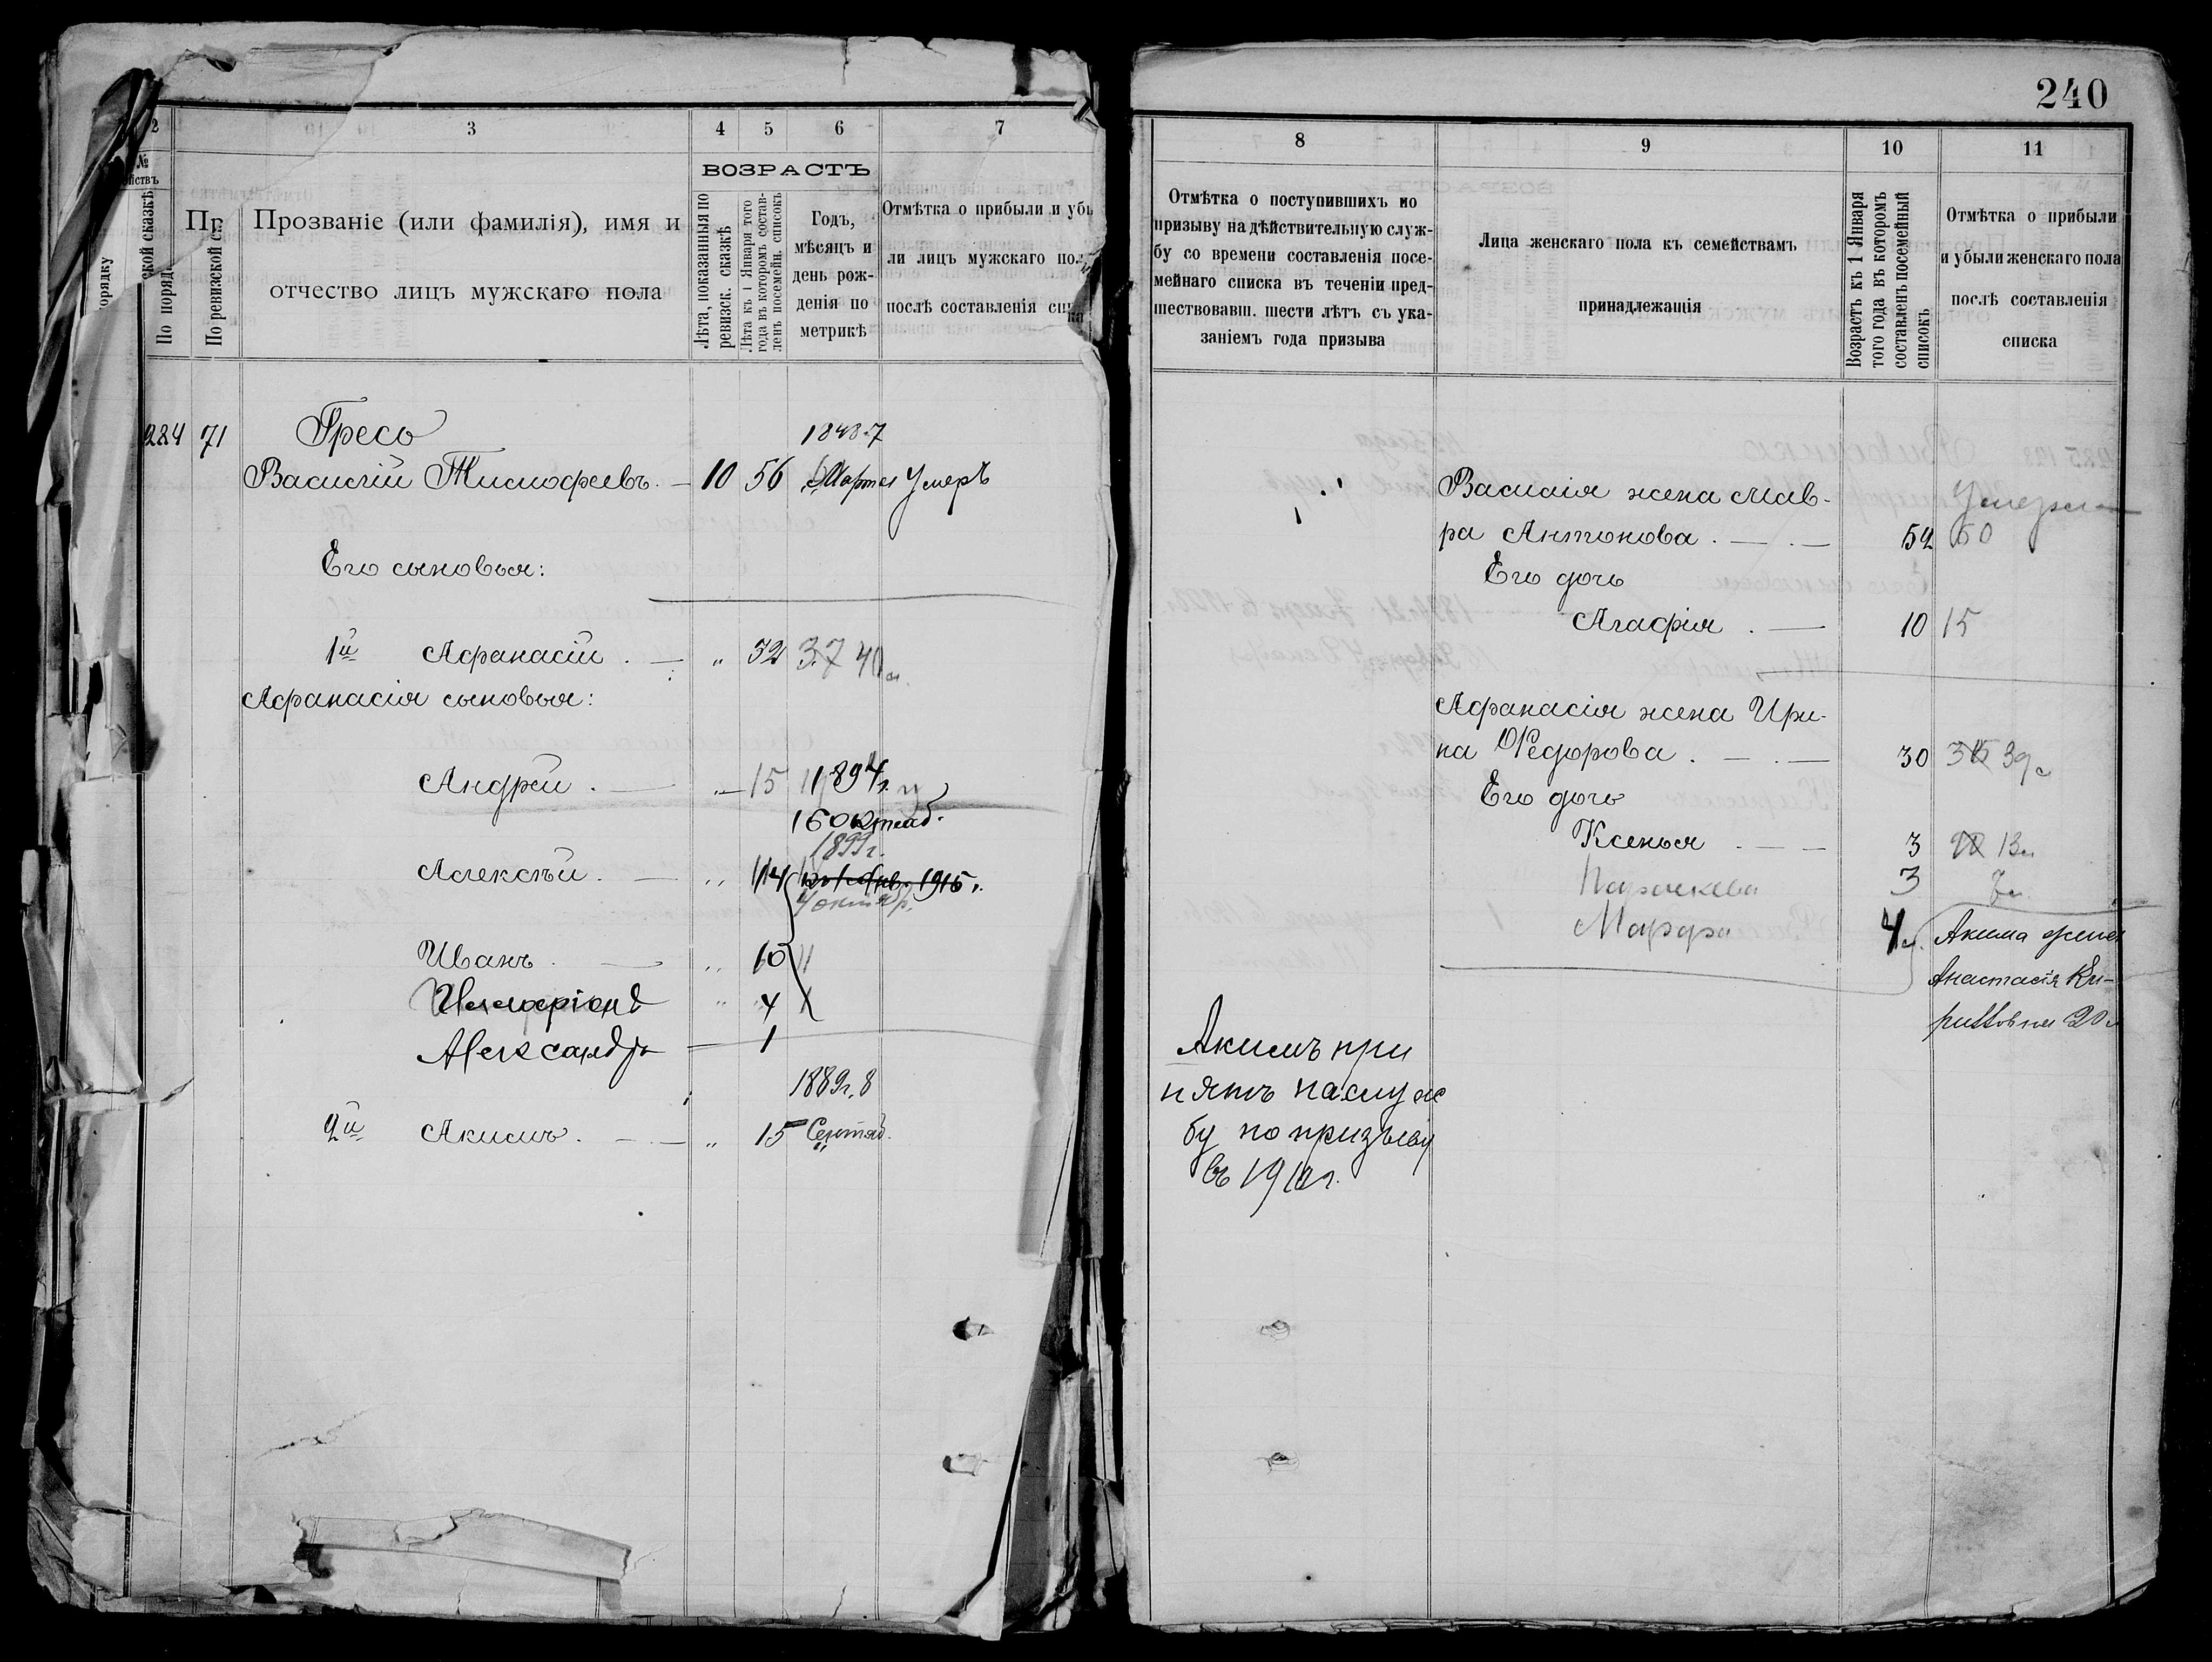 240
2 3 4 5 6 7
ВОЗРАСТЪ
По ревизской ск
Прозваніе (или фамилія), имя и
отчество лицъ мужскаго пола
Лѣта, показанныя по
ревизск. сказкѣ
Лѣта къ 1 Января того
года въ которомъ состав-
ленъ посемейн. списокъ
Годъ,
мѣсяцъ и
день рож-
денія по
метрикѣ
Отмѣтка о прибыли и убы
ли лицъ мужскаго пола
послѣ составленія списка
284 71 Гресь 1848.7
Василій Тимофеевъ. — 10 56 Марта Умеръ
Его сыновья:
1й Афанасій . — „ 32 37 40
Афанасія сыновья:
Андрей . — „ 15 1894г.
16 Октяб.
1899г.
Алексѣй . — „ 1915г.
4 октябр.
Иванъ . — „ 10
Илларіонъ „ 4
Александръ — 1
1889г. 8
2й Акимъ . — „ 15 Сентяб.
8 9 10 11
Отмѣтка о поступившихъ по
призыву на дѣйствительную служ-
бу со времени составленія посе-
мейнаго списка въ теченіи пред-
шествовавш. шести лѣтъ съ ука-
заніемъ года призыва
Лица женскаго пола къ семействамъ
принадлежащія
Возрастъ къ 1 Января
того года въ которомъ
составленъ посемейный
списокъ
Отмѣтка о прибыли
и убыли женскаго пола
послѣ составленія
списка
Василія жена Мав- Умерла
ра Антонова . — . — 52 60
Его дочь
Агафія . — 10 15
Афанасія жена Ири-
на Ѳедорова . — . — 30 39
Его дочь
Ксенья . — — 3 13л
Параскева 3
Марфа 4 Акима жена
Анастасія Ки-
рилловна 20л
Акимъ при
нятъ на служ
бу по призыву
въ 1910г.